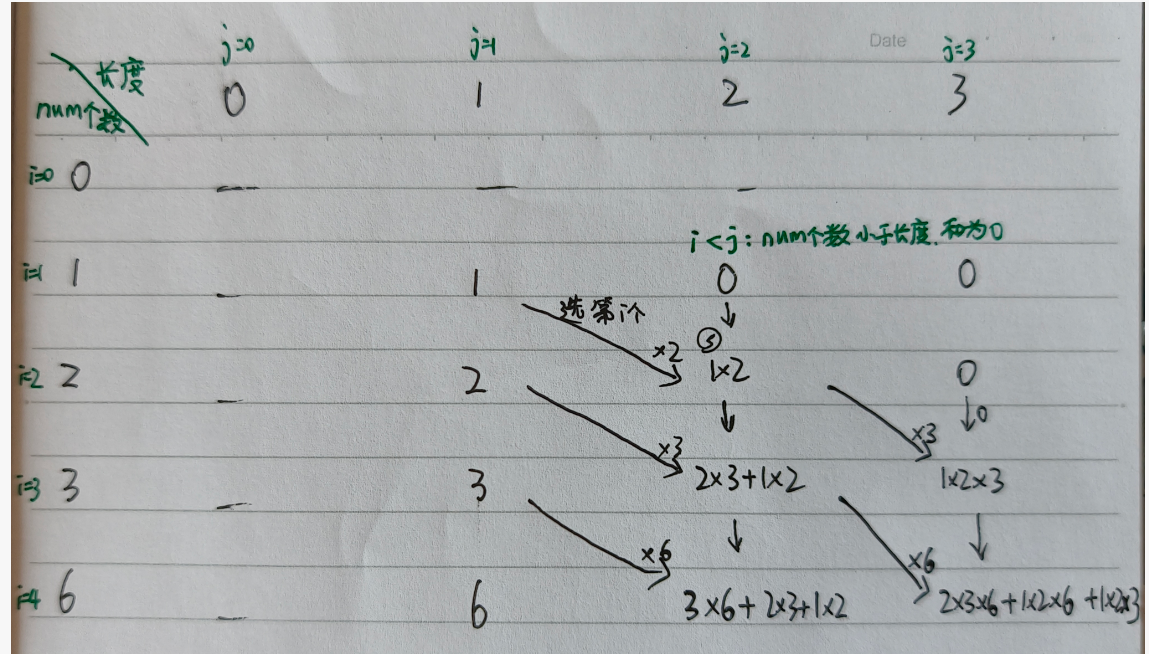 j=0 j=1 j=2 Date j=3
长度
num个数 0 1 2 3
i=0 0 — — —
i<j: num个数小于长度,和为0
i=1 1 — 1 0 0
选第i个
×2
i=2 2 — 2 1×2 0
0
×3 ×3
i=3 3 — 3 2×3+1×2 1×2×3
×6 ×6
i=4 6 — 6 3×6+2×3+1×2 2×3×6+1×2×6+1×2×3